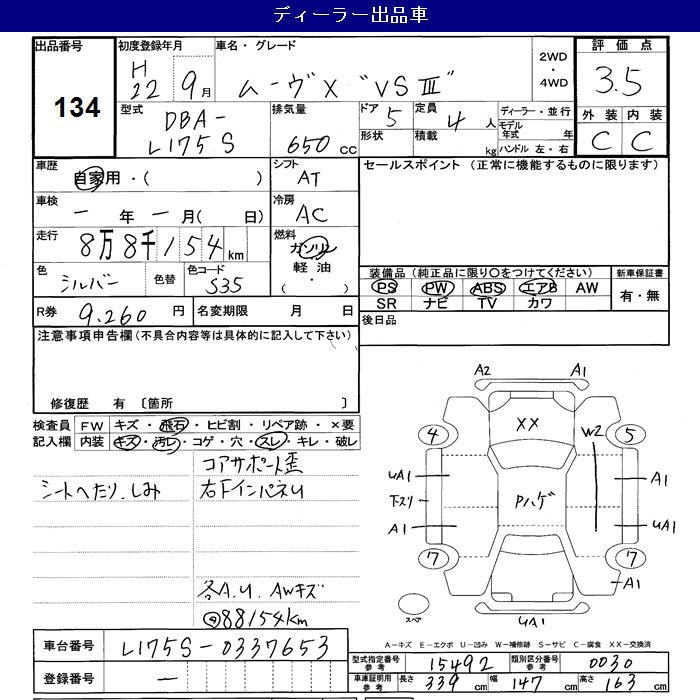 ディーラー出品車
出品番号
134
初度登録年月
H
22 9月
車名・グレード
ムーヴX "VSⅢ"
2WD
・
4WD
評価点
3.5
型式
DBA-
L175S
排気量
650 cc
ドア 5
形状
定員 4 人
積載 kg
ディーラー・並行
モデル
年式 年
ハンドル 左・右
外装 内装
C C
車歴
自家用・( )
シフト
AT
セールスポイント (正常に機能するものに限ります)
車検
一年一月( 日)
冷房
AC
走行
8万8千154km
燃料
ガソリン
軽油
( ・ )
色
シルバー
色替
色コード
S35
装備品(純正品に限り○をつけてください)
新車保証書
PS PW ABS エアB AW
SR ナビ TV カワ
有・無
R券 9.260 円
名変期限 月 日
後日品
注意事項申告欄(不具合内容等は具体的に記入して下さい)
修復歴 有 〔箇所 〕
検査員
記入欄
FW キズ・飛石・ヒビ割・リペア跡・×要
内装 キズ・汚レ・コゲ・穴・スレ・キレ・破レ
コアサポート歪
シートへたり.しみ
右下インパネU
各A.U.AWキズ
88154km
A2 A1
XX
4
W2
5
UA1
A1
下スリ
Pハゲ
A1
UA1
7
7
A1
スペア
UA1
A-キズ E-エクボ U-凹み W-補修跡 S-サビ C-腐食 XX-交換済
車台番号 L175S-0337653
登録番号 一
型式指定番号
参考
15492
類別区分番号
参考
0030
車庫証明用
参考
長さ 339 cm 幅 147 cm 高さ 163 cm